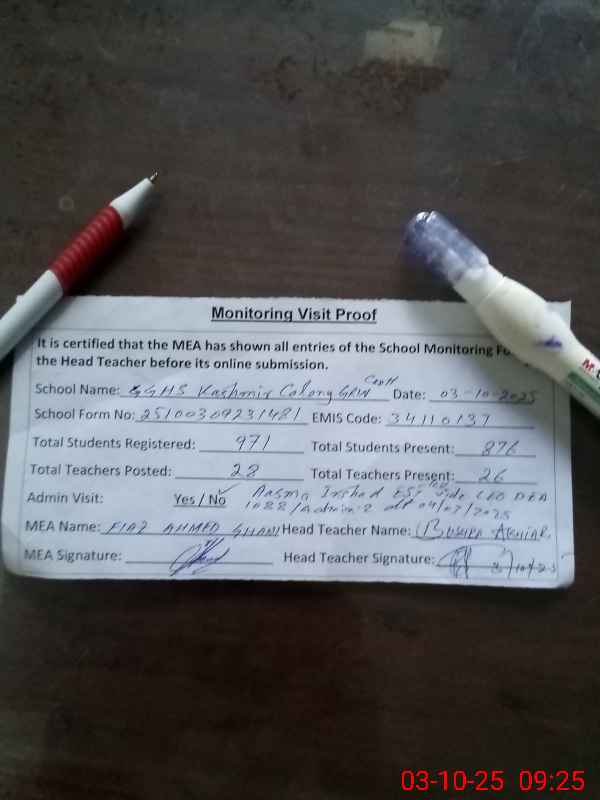 Monitoring Visit Proof
It is certified that the MEA has shown all entries of the School Monitoring Fo
the Head Teacher before its online submission.
School Name: GGHS Kashmir Colony GRW Date: 03-10-2025
School Form No: 25100309231481 EMIS Code: 34110137
Total Students Registered: 971 Total Students Present: 876
Total Teachers Posted: 28 Total Teachers Present: 26
Admin Visit: Yes / No ✓ Irshad EST vide CEO DEA
1088/Admin-2 dt 04/07/2025
MEA Name: FIAZ AHMED GHANI Head Teacher Name: (BUSHRA AKHTAR)
MEA Signature: Head Teacher Signature:
M
03-10-25 09:25